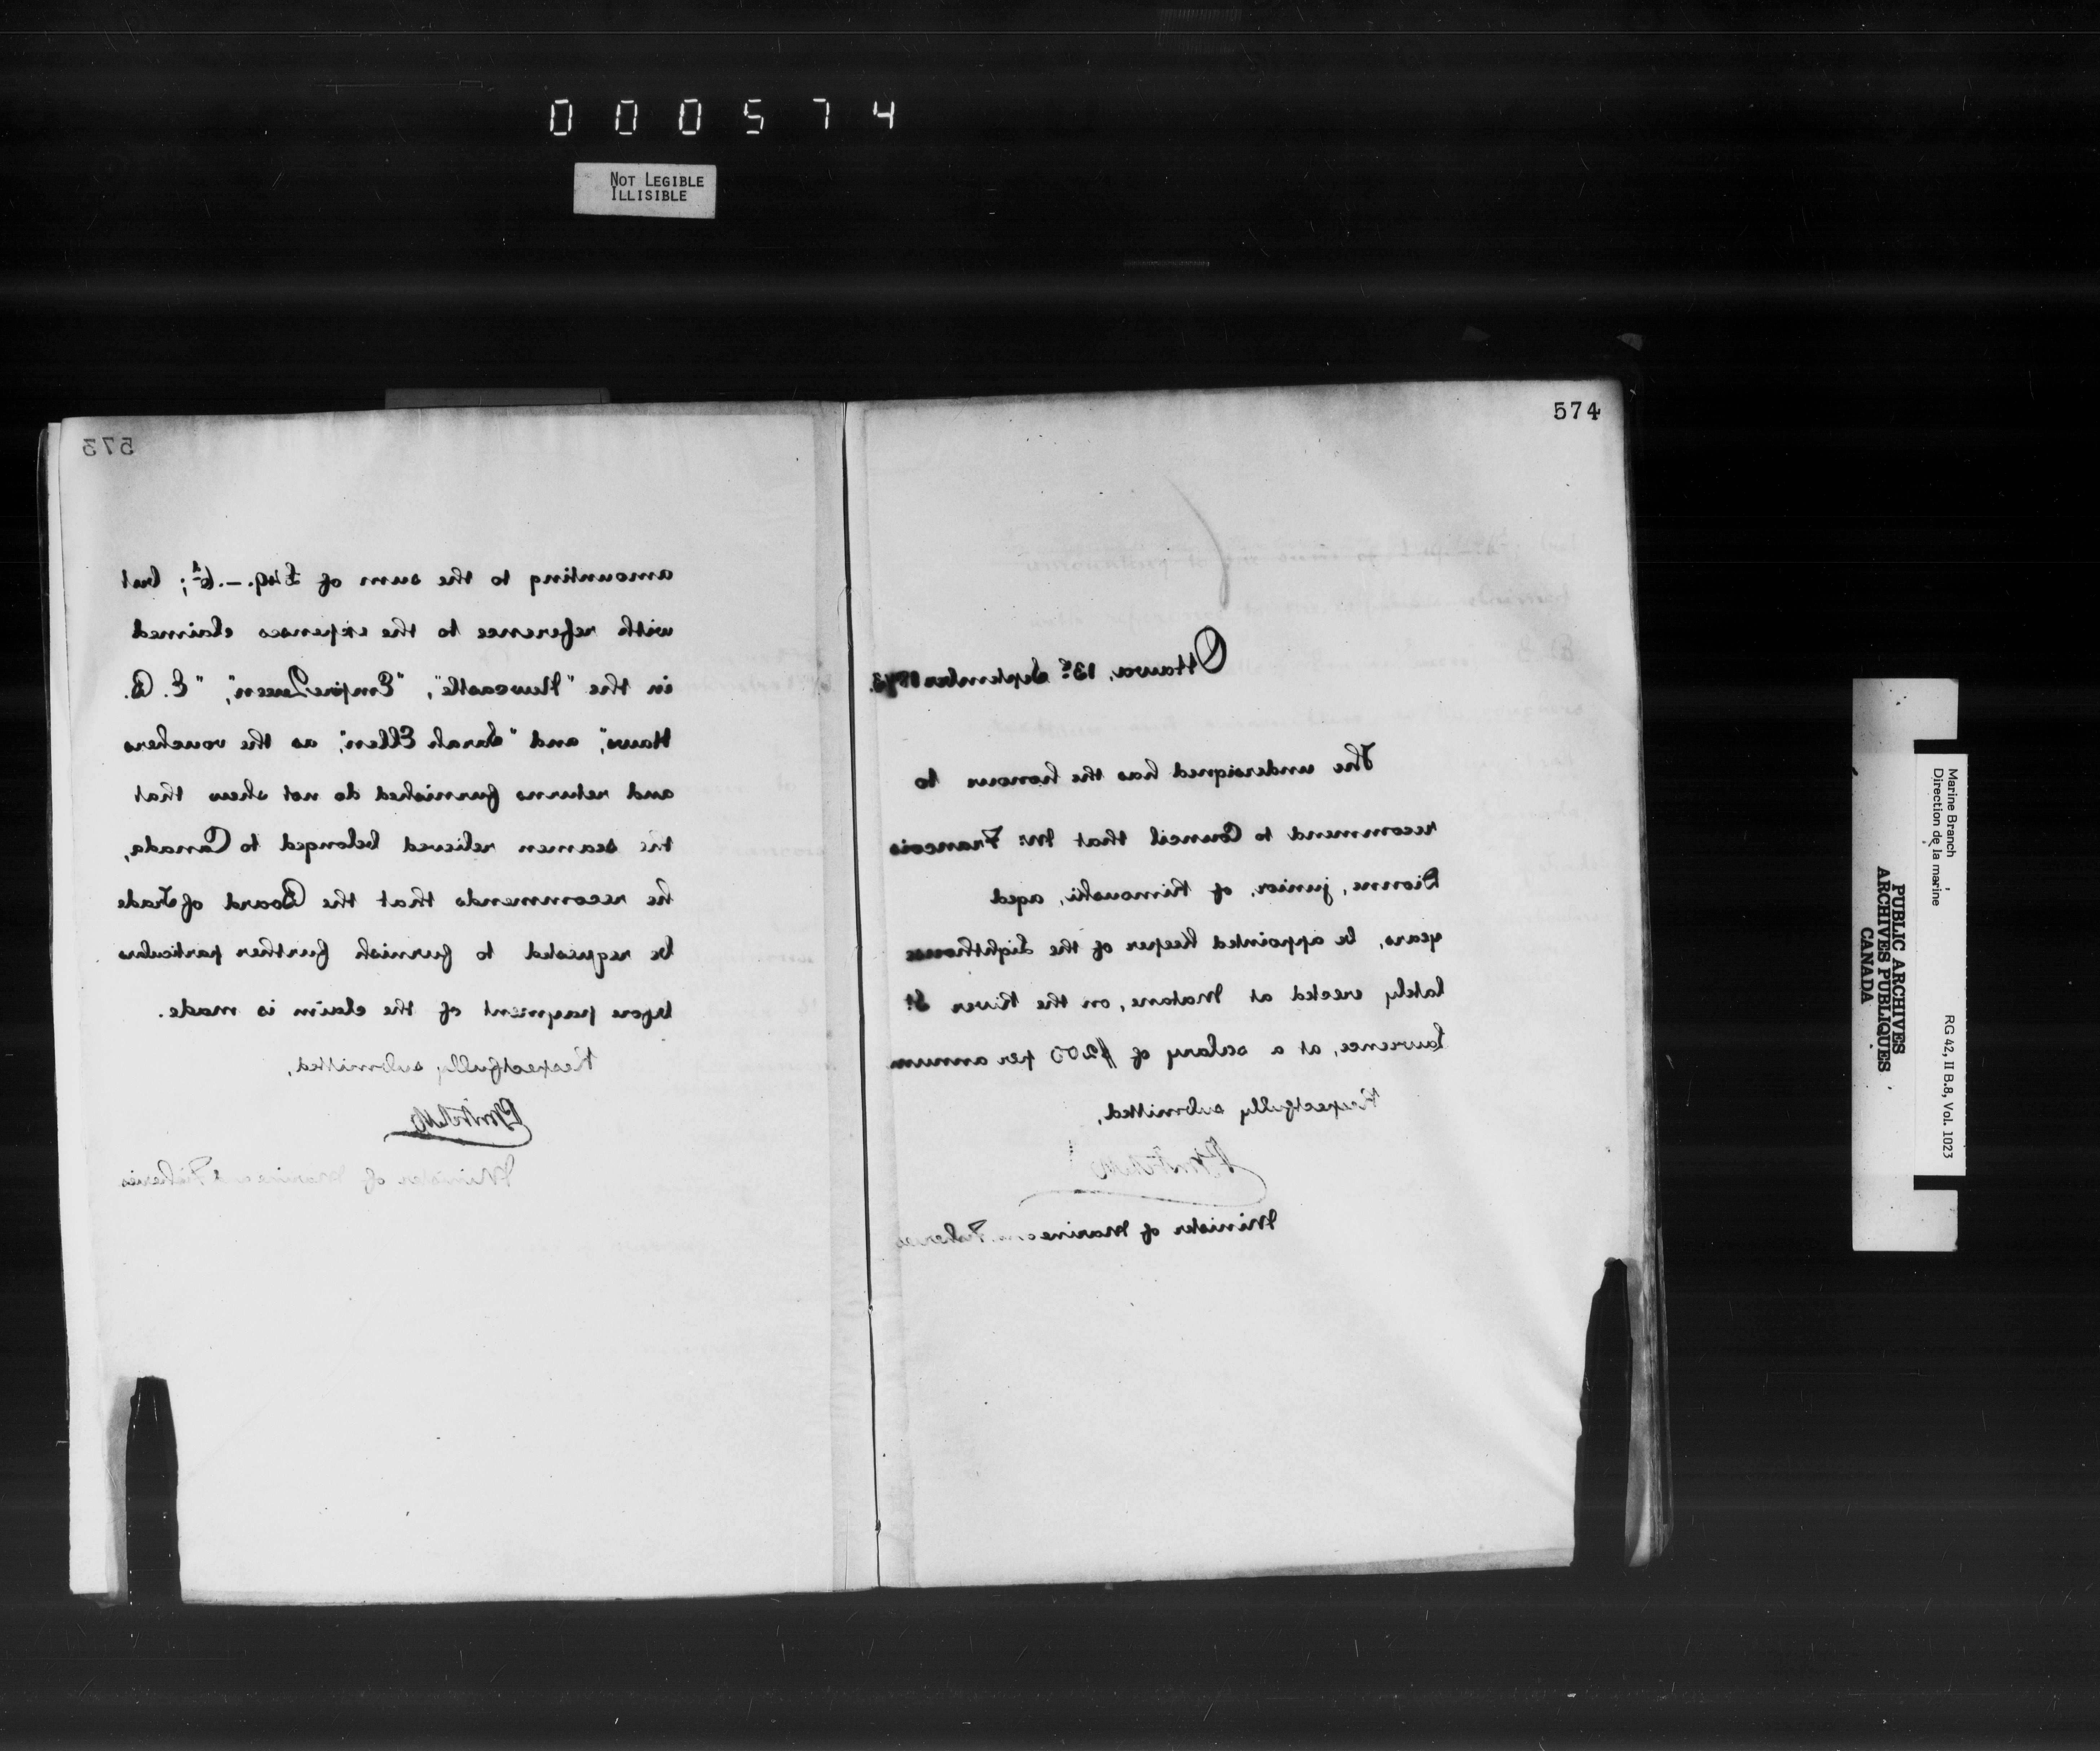 000574
NOT LEGIBLE
ILLISIBLE
573
amounting to the sum of £49.-.6ᵈ; but
with reference to the expenses claimed
in the "Newcastle", "Empire Queen", "E. B.
Haws", and "Sarah Ellen", as the vouchers
and returns furnished do not shew that
the seamen relieved belonged to Canada,
he recommends that the Board of Trade
be requested to furnish further particulars
before payment of the claim is made.
Respectfully submitted,
Minister of Marine and Fisheries
574
Ottawa, 13ᵗʰ September 1873.
The undersigned has the honour to
recommend to Council that Mr. Francois
Dionne, junior, of Rimouski, aged
years, be appointed Keeper of the Lighthouse
lately erected at Matane, on the River St.
Lawrence, at a salary of $200 per annum
Respectfully submitted,
Minister of Marine and Fisheries
Marine Branch
Direction de la marine
RG 42, II B.8, Vol. 1023
PUBLIC ARCHIVES
ARCHIVES PUBLIQUES
CANADA